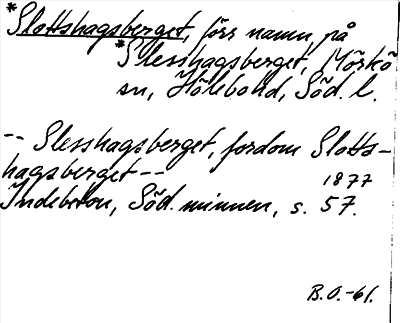 *Slottshagsberget, förr namn på
*Slesshagsberget, Mörkö
sn, Hölebohd, Söd. l.
-- Slesshagsberget, fordom Slotts-
hagsberget --
1877
Indebetou, Söd. minnen, s. 57.
B.O.-61.